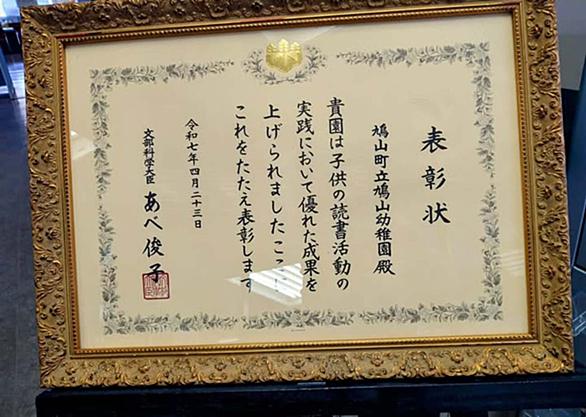 表彰状
鳩山町立鳩山幼稚園殿
貴園は子供の読書活動の
実践において優れた成果を
上げられましたここに
これをたたえ表彰します
令和七年四月二十三日
文部科学大臣 あべ俊子